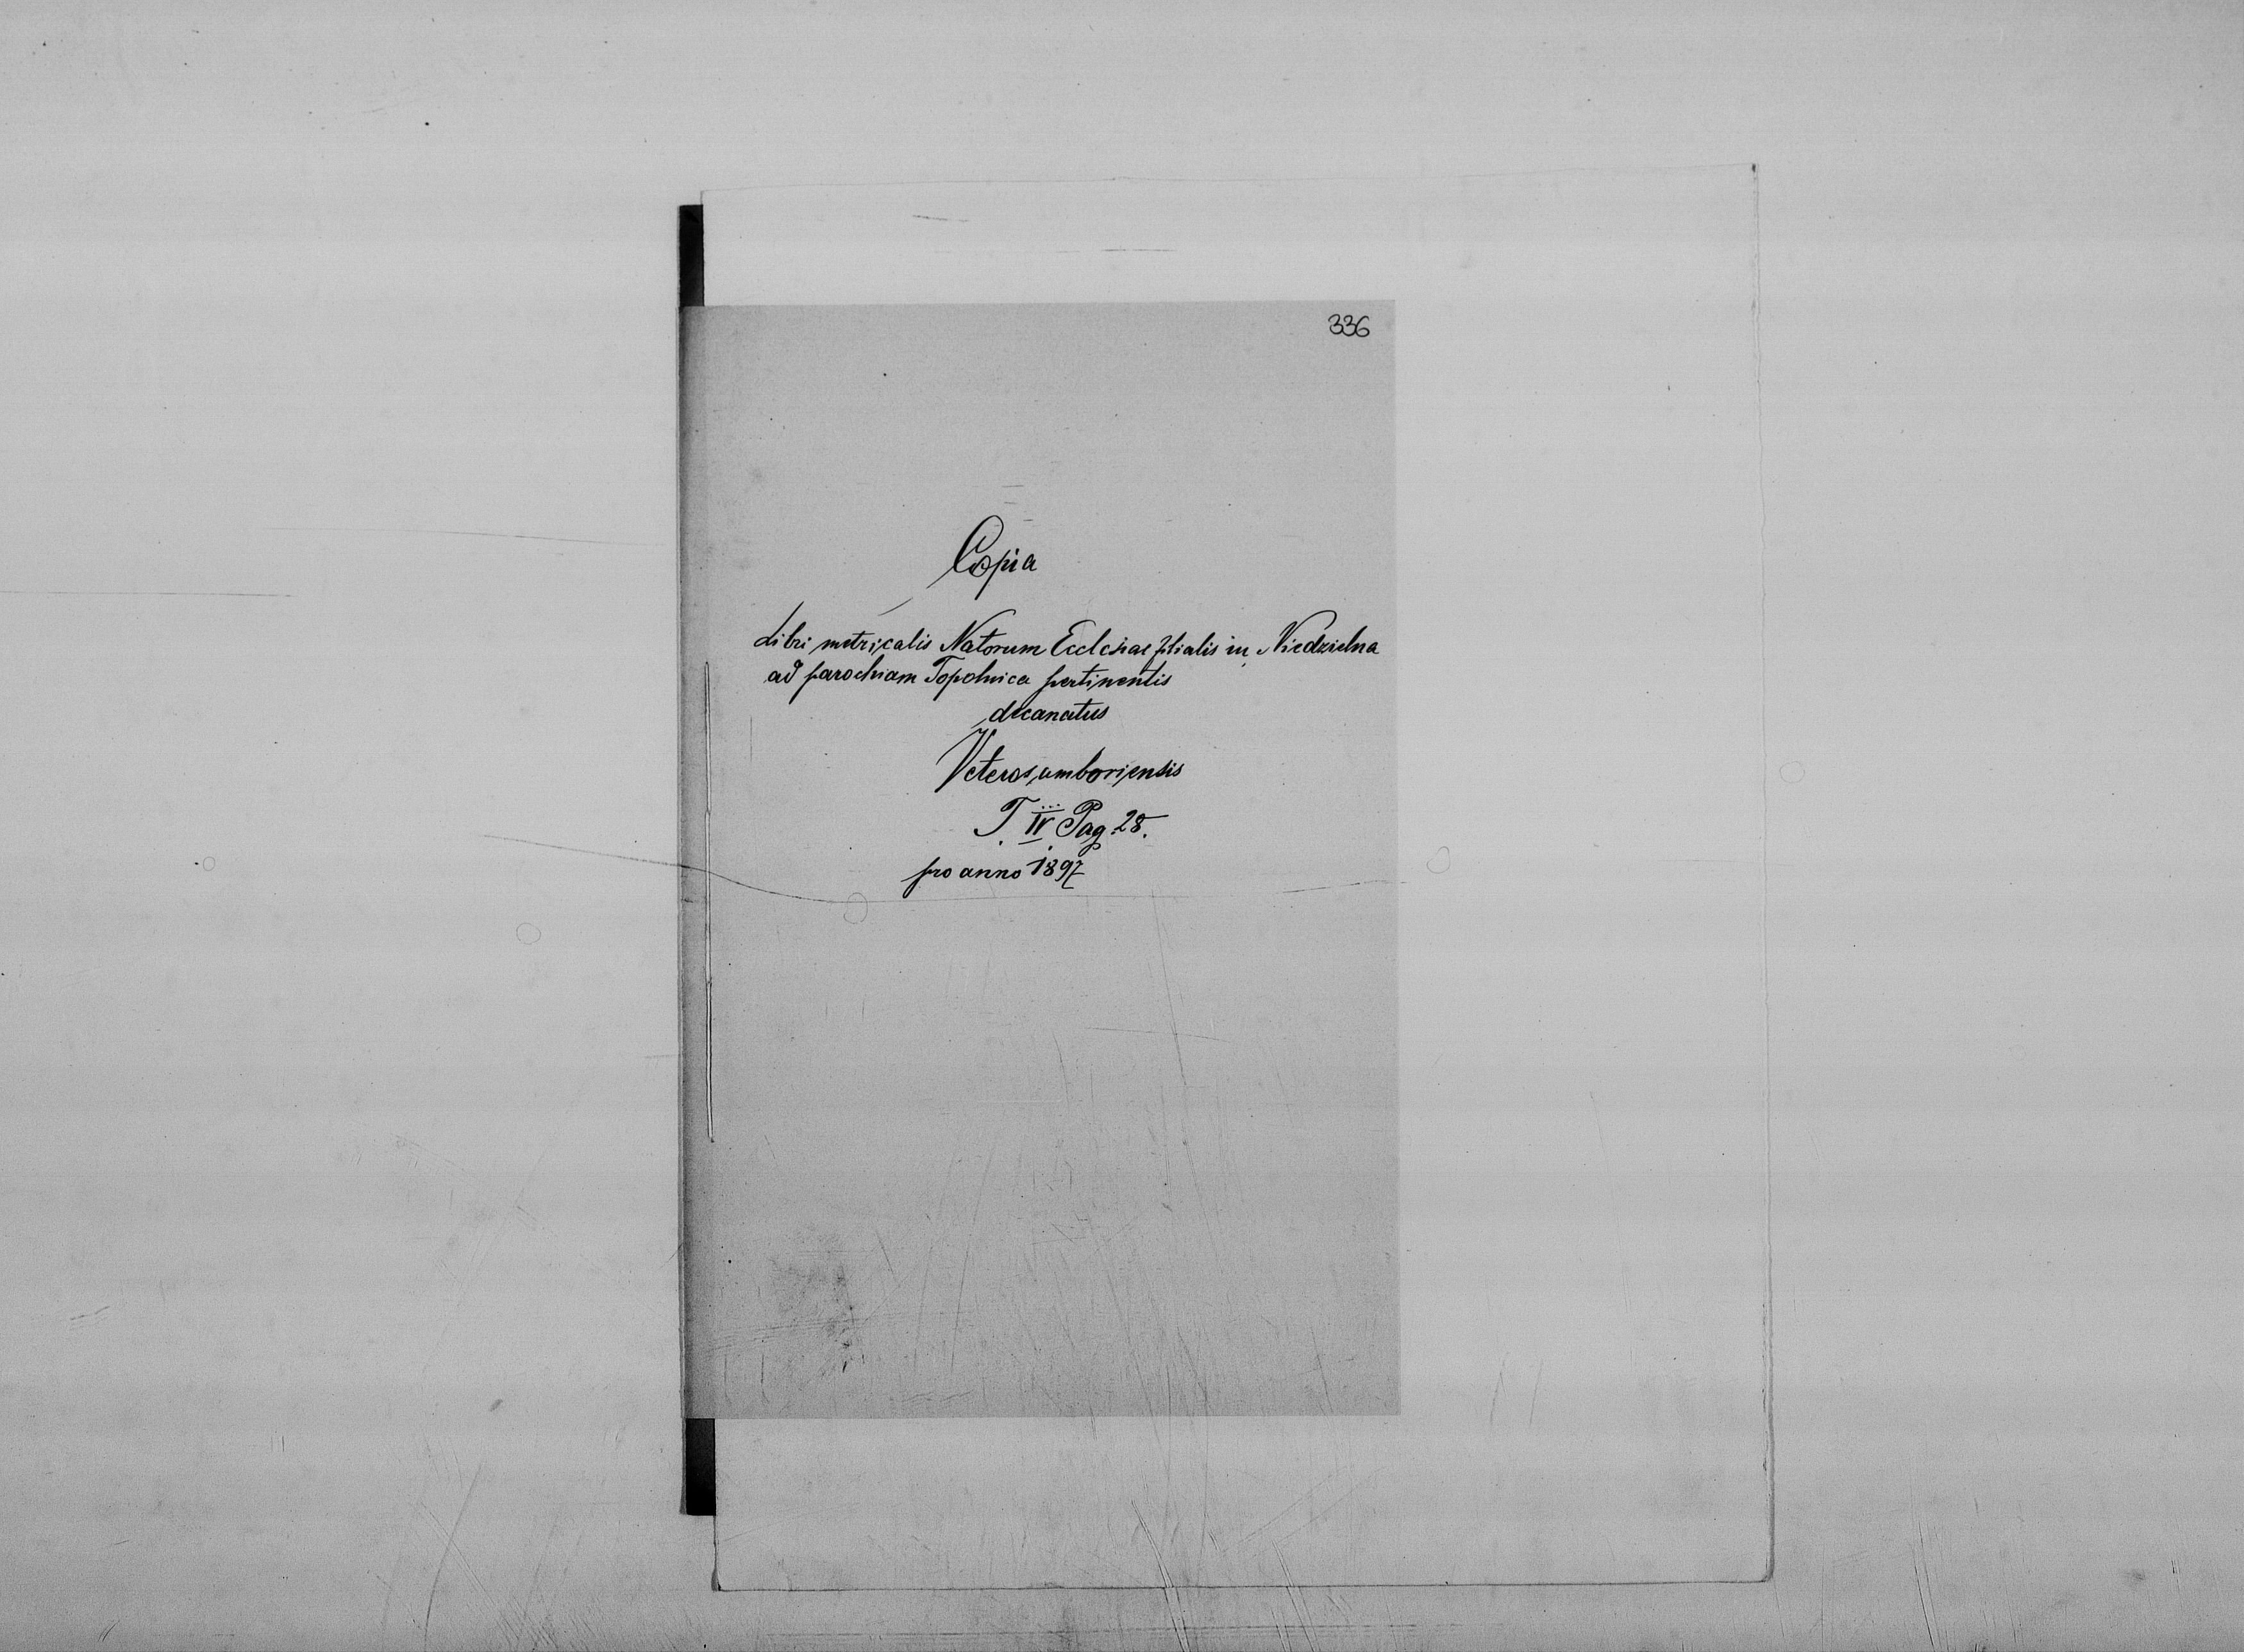 336
Copia
Libri metricalis Natorum Ecclesiae filialis in Niedzielna
ad parochiam Topolnica pertinentis
decanatus
Veterosamboriensis
T. IV Pag. 28.
pro anno 1897